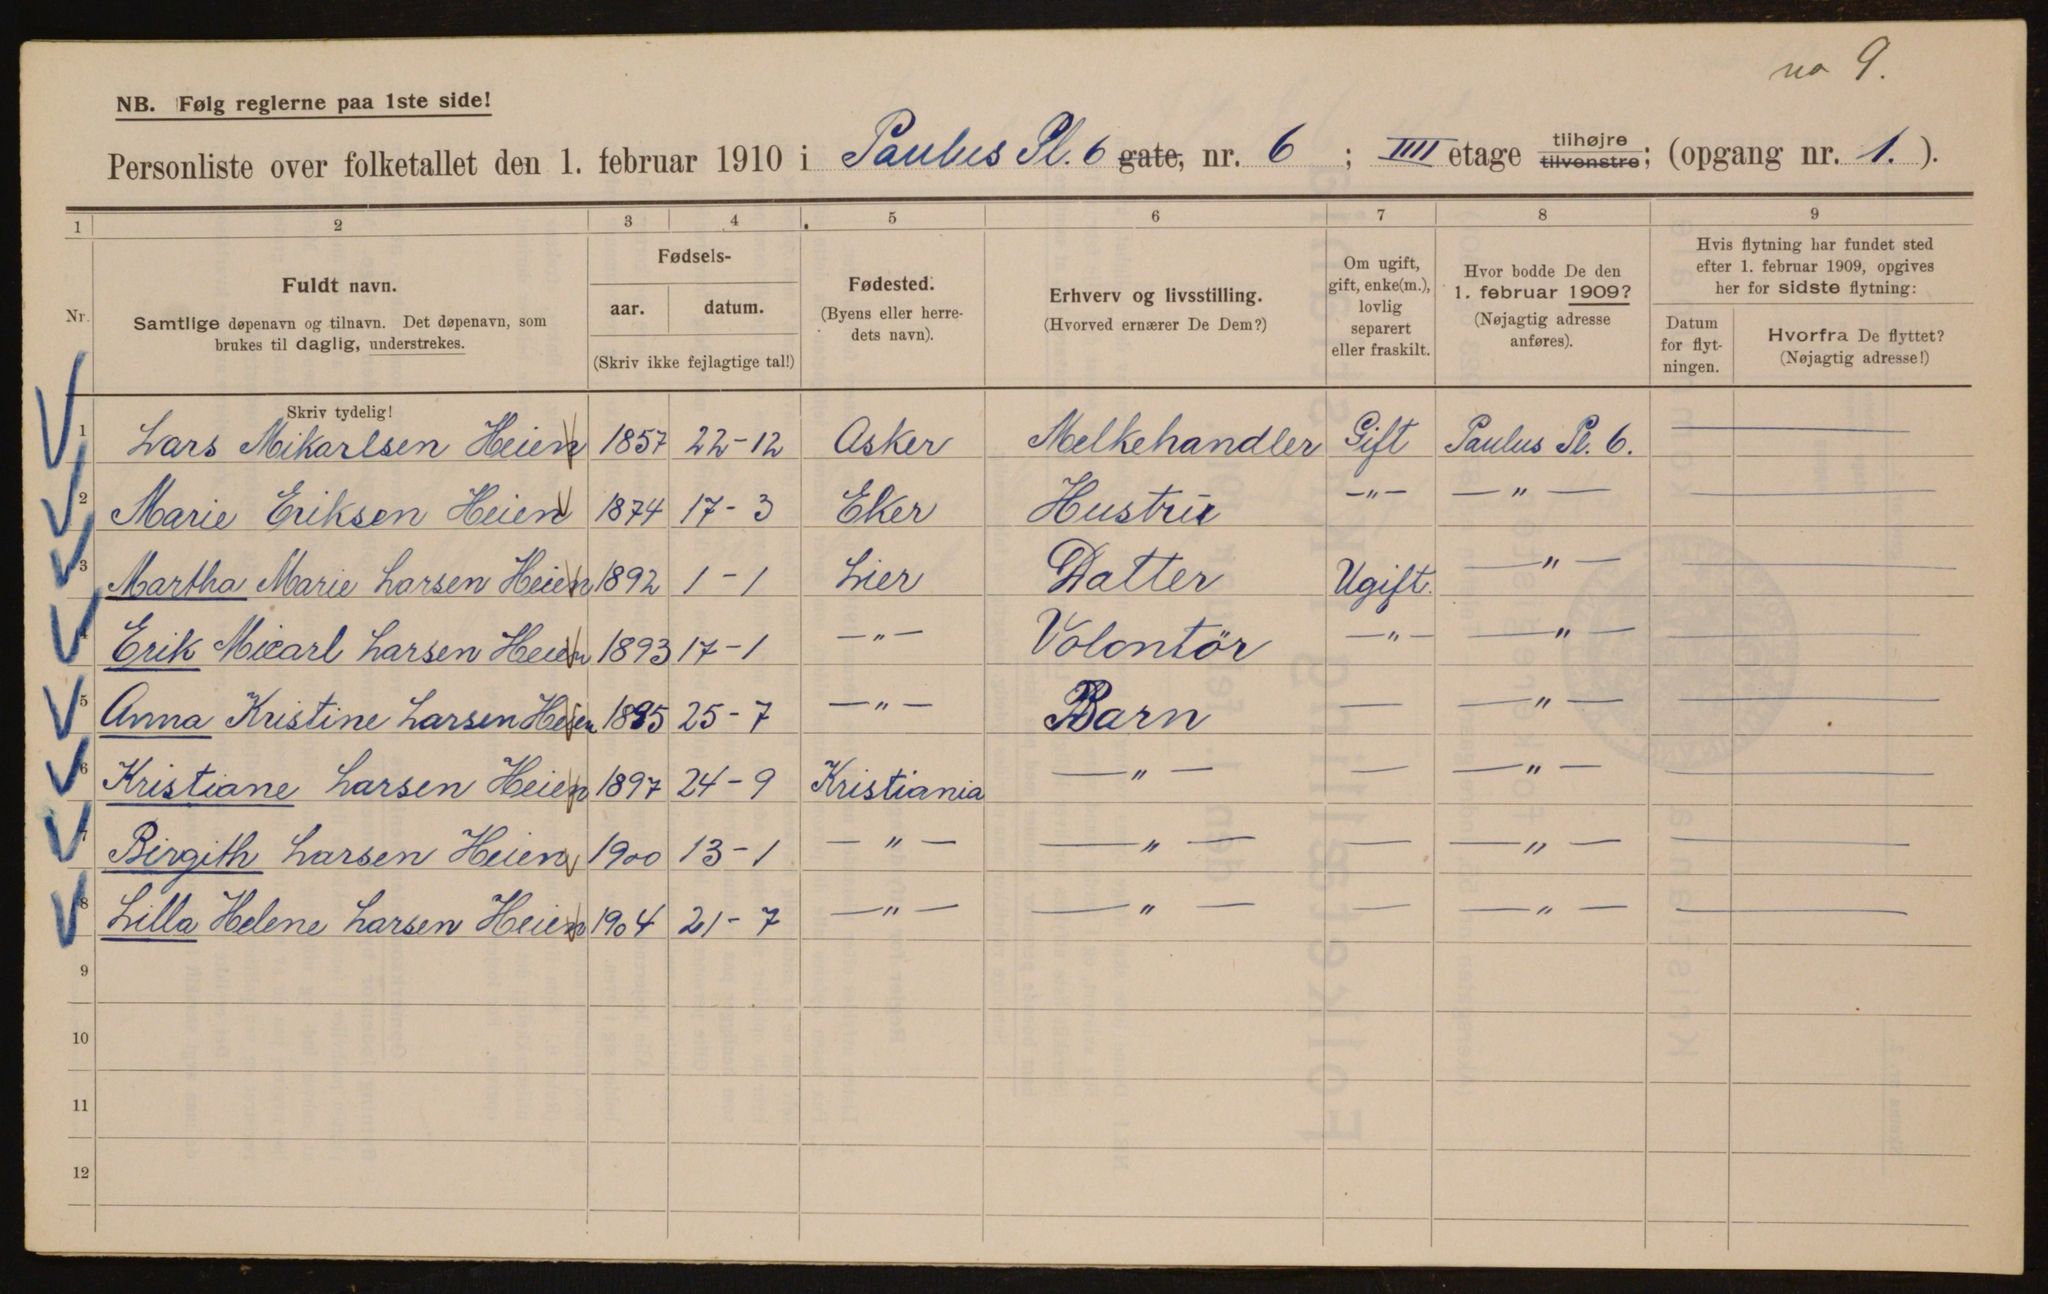 no 9.
NB. Følg reglerne paa 1ste side!
Personliste over folketallet den 1. februar 1910 i Paulus Pl. 6 gate, nr. 6 ; IIII etage tilhøjre tilvenstre; (opgang nr. 1. ).
1 2 3 4 5 6 7 8 9
Nr.
Fuldt navn.
Samtlige døpenavn og tilnavn. Det døpenavn, som
brukes til daglig, understrekes.
Fødsels-
aar. datum.
(Skriv ikke fejlagtige tal!)
Fødested.
(Byens eller herre-
dets navn).
Erhverv og livsstilling.
(Hvorved ernærer De Dem?)
Om ugift,
gift, enke(m.),
lovlig
separert
eller fraskilt.
Hvor bodde De den
1. februar 1909?
(Nøjagtig adresse
anføres).
Hvis flytning har fundet sted
efter 1. februar 1909, opgives
her for sidste flytning:
Datum
for flyt-
ningen.
Hvorfra De flyttet?
(Nøjagtig adresse!)
Skriv tydelig!
1 Lars Mikarlsen Heien 1857 22-12 Asker Melkehandler Gift Paulus Pl. 6. —
2 Marie Eriksen Heien 1874 17-3 Eker Hustru -"- -"- —
3 Martha Marie Larsen Heien 1892 1-1 Lier Datter Ugift. -"- —
4 Erik Micarl Larsen Heien 1893 17-1 -"- Volontör -"- -"- —
5 Anna Kristine Larsen Heien 1895 25-7 -"- Barn — -"- —
6 Kristiane Larsen Heien 1897 24-9 Kristiania -"- — -"- —
7 Birgith Larsen Heien 1900 13-1 -"- -"- — -"- —
8 Lilla Helene Larsen Heien 1904 21-7 -"- -"- — -"- —
9
10
11
12